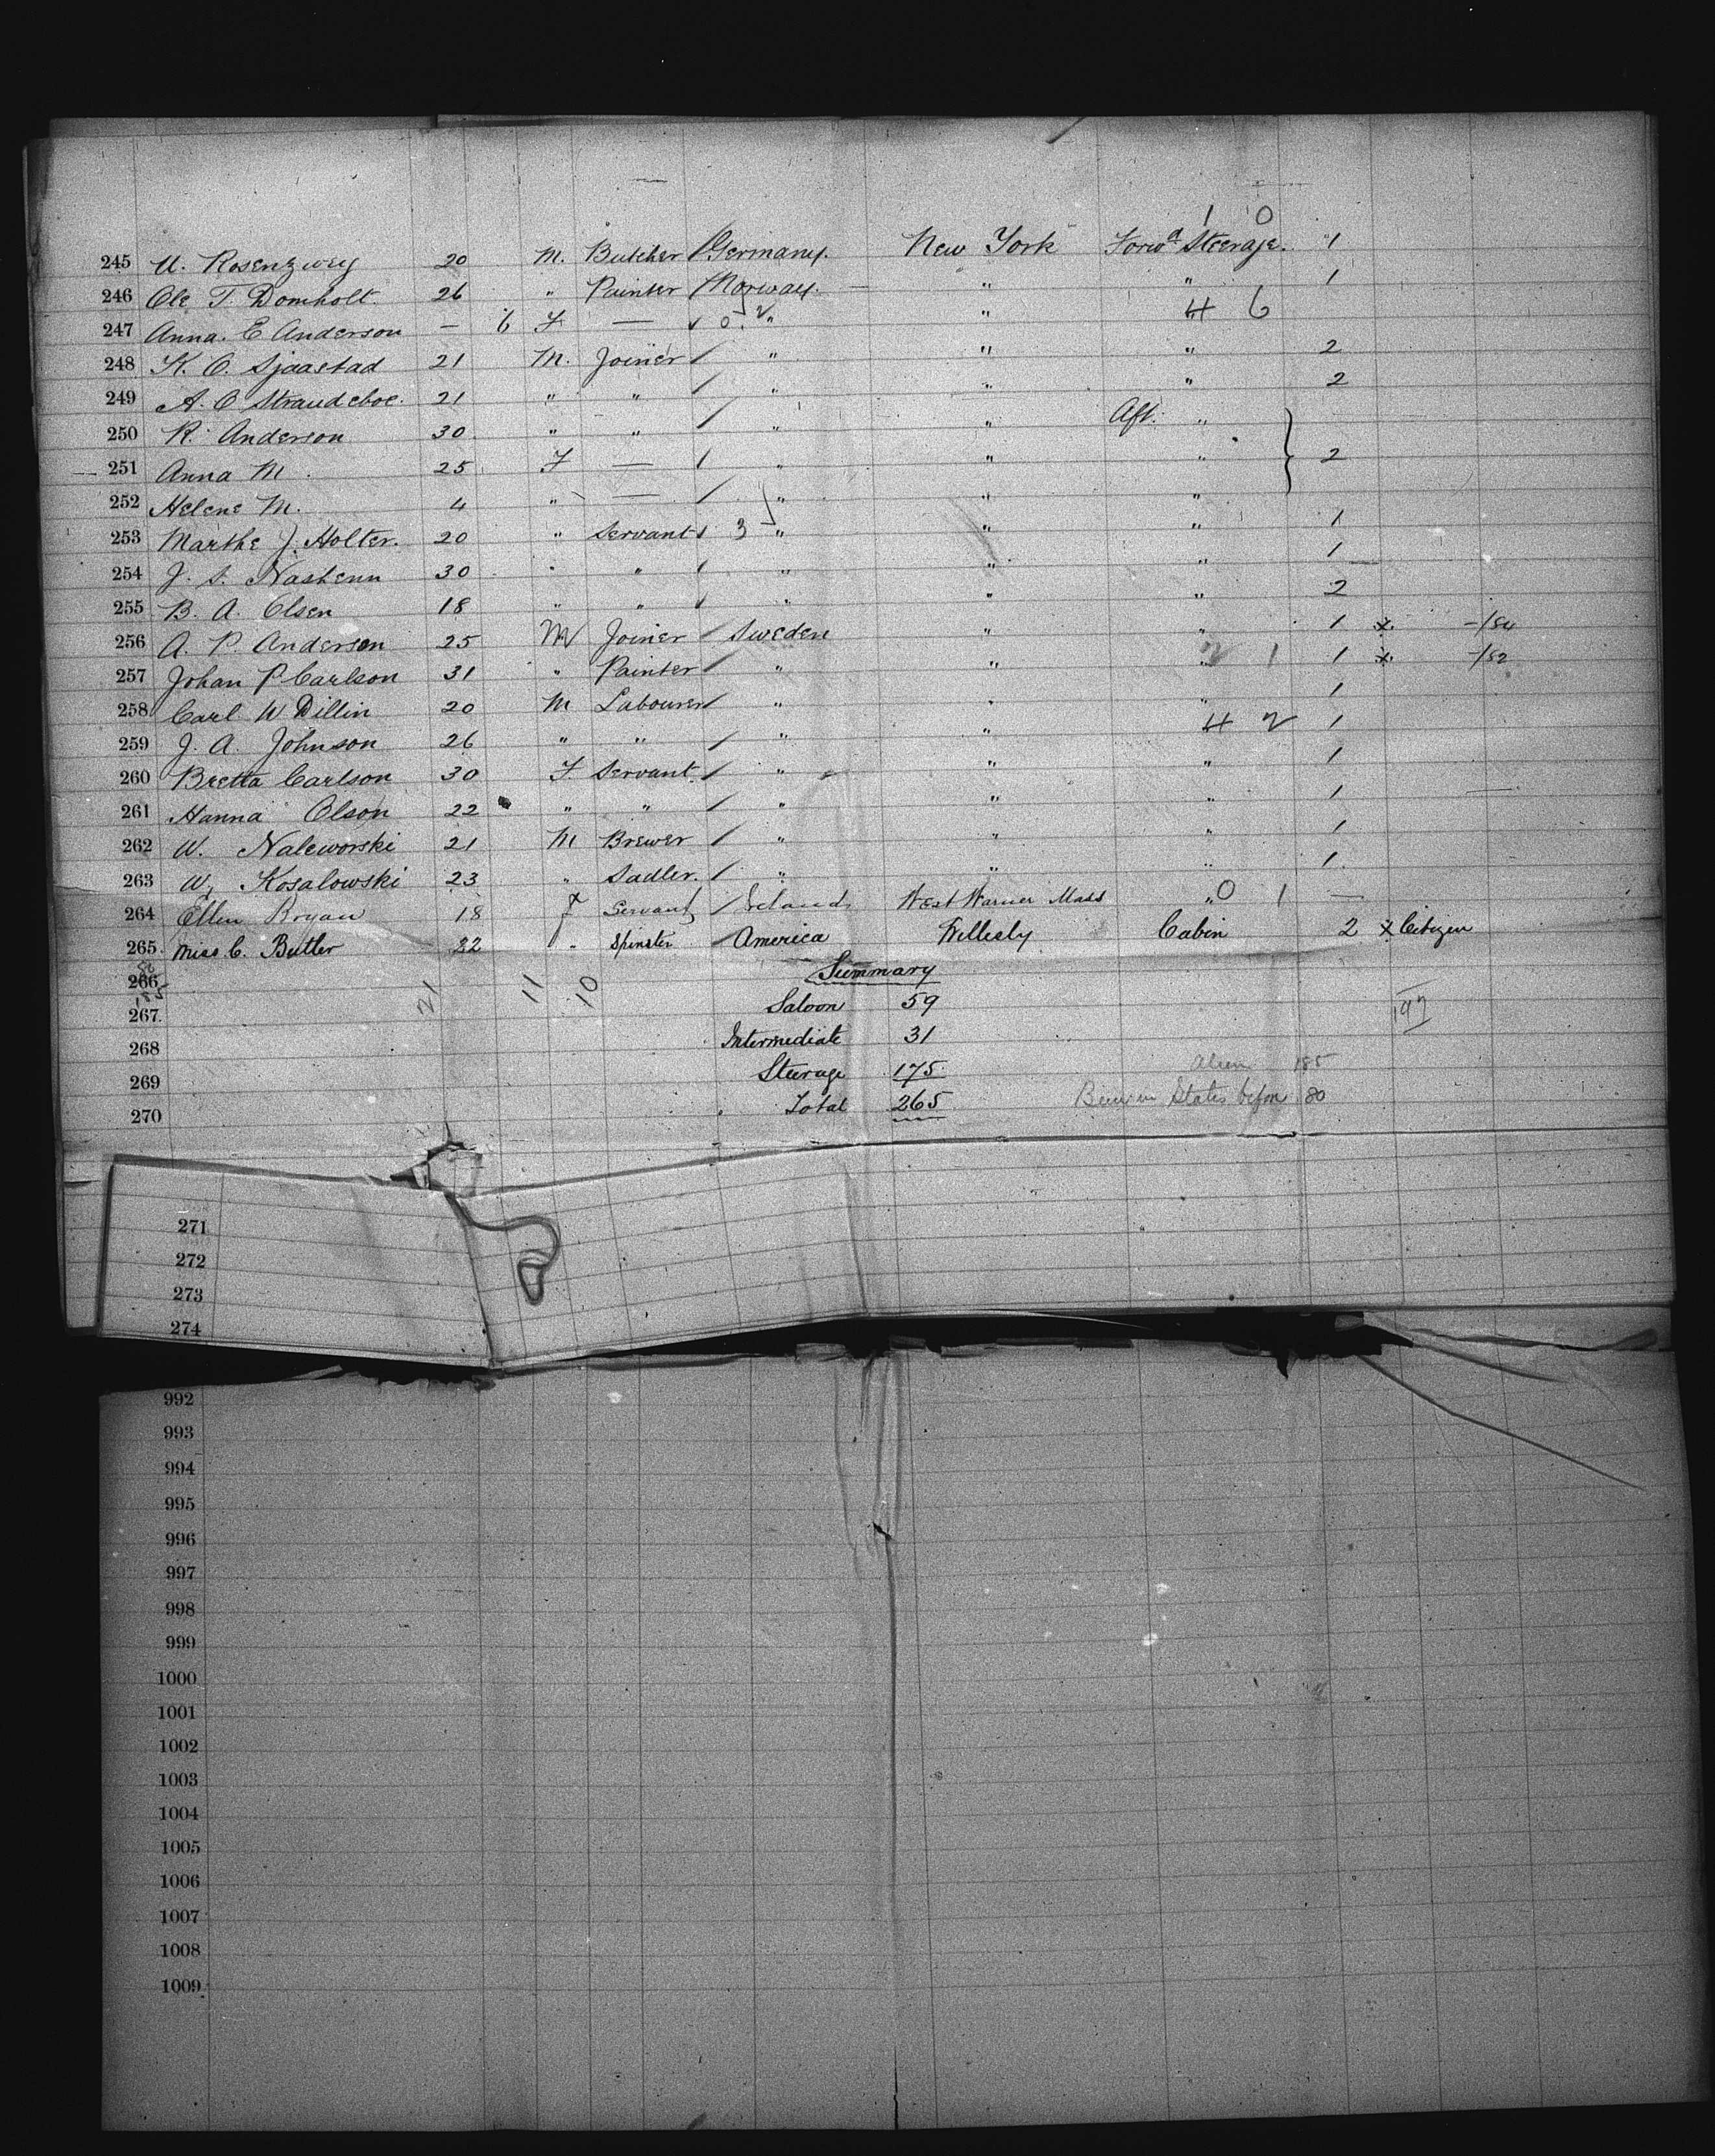 1 0
245 U. Rosenzwey 20 M. Butcher / Germany. New York Forwd Steerage. 1
246 Ole T. Domholt 26 " Painter / Norway. " " 1
247 Anna. E Anderson – 6 F — " " 4 6
248 K. O. Sjaastad 21 M. Joiner / " " " 2
249 A. O Strandeboe. 21 " " / " " " 2
250 R. Anderson 30 " " / " " Aft. "
251 Anna M. 25 F — / " " " 2
252 Helene M. 4 " — / " " "
253 Marthe J. Holter. 20 " Servant / 3 " " " 1
254 J. S. Nashenn 30 " " / " " " 1
255 B. A. Olsen 18 " " / " " " 2
256 A. P. Anderson 25 M Joiner / Sweden " " 1 x -/84
257 Johan P Carlson 31 " Painter / " " " 2 1 1 x -/82
258 Carl W Dillin 20 M Labourer / " " " 1
259 J. A. Johnson 26 " " / " " 4 2 1
260 Bretta Carlson 30 F Servant / " " " 1
261 Hanna Olson 22 " " / " " " 1
262 W. Naleworski 21 M Brewer / " " " 1
263 W. Kosalowski 23 " Sadler. / " " " 1
264 Ellen Bryan 18 F Servant / Ireland West Warner Mass " 0 1 —
265 Miss C. Butler 22 " Spinster / America Wellesly Cabin 2 x Citizen
266 Summary
21 11 10
267 Saloon 59
268 Intermediate 31
269 Steerage 175 Alien 185
270 Total 265 Been in States before 80
271
272
273
274
992
993
994
995
996
997
998
999
1000
1001
1002
1003
1004
1005
1006
1007
1008
1009